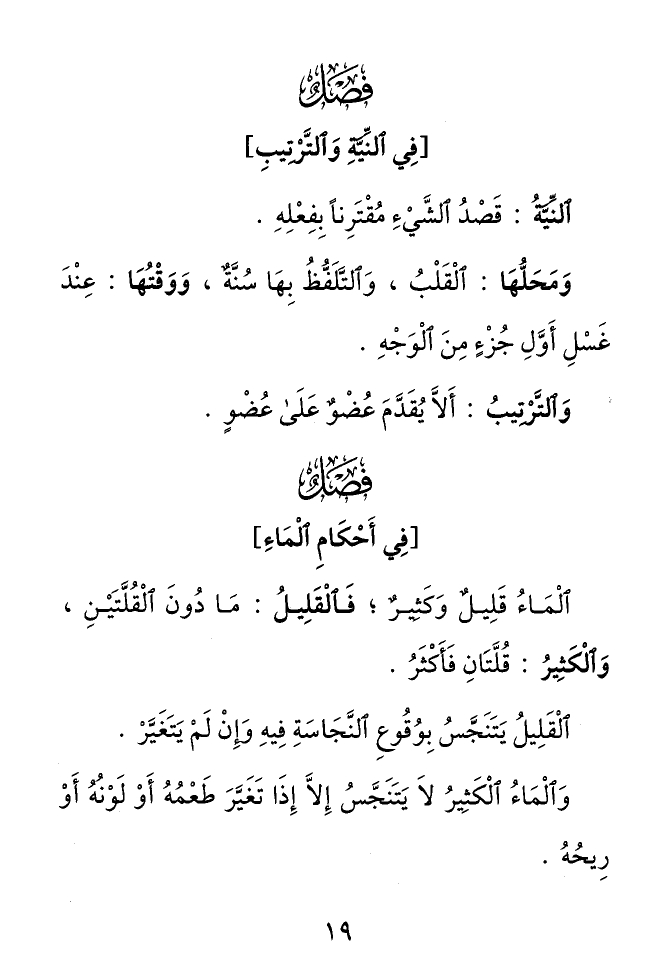 فَصْلٌ
[فِي ٱلنِّيَّةِ وَٱلتَّرْتِيبِ]
ٱلنِّيَّةُ : قَصْدُ ٱلشَّيْءِ مُقْتَرِناً بِفِعْلِهِ .
وَمَحَلُّهَا : ٱلْقَلْبُ ، وَٱلتَّلَفُّظُ بِهَا سُنَّةٌ ، وَوَقْتُهَا : عِنْدَ
غَسْلِ أَوَّلِ جُزْءٍ مِنَ ٱلْوَجْهِ .
وَٱلتَّرْتِيبُ : أَلاَّ يُقَدَّمَ عُضْوٌ عَلَىٰ عُضْوٍ .
فَصْلٌ
[فِي أَحْكَامِ ٱلْمَاءِ]
ٱلْمَاءُ قَلِيلٌ وَكَثِيرٌ ؛ فَٱلْقَلِيلُ : مَا دُونَ ٱلْقُلَّتَيْنِ ،
وَٱلْكَثِيرُ : قُلَّتَانِ فَأَكْثَرُ .
ٱلْقَلِيلُ يَتَنَجَّسُ بِوُقُوعِ ٱلنَّجَاسَةِ فِيهِ وَإِنْ لَمْ يَتَغَيَّرْ .
وَٱلْمَاءُ ٱلْكَثِيرُ لاَ يَتَنَجَّسُ إِلاَّ إِذَا تَغَيَّرَ طَعْمُهُ أَوْ لَوْنُهُ أَوْ
رِيحُهُ .
١٩